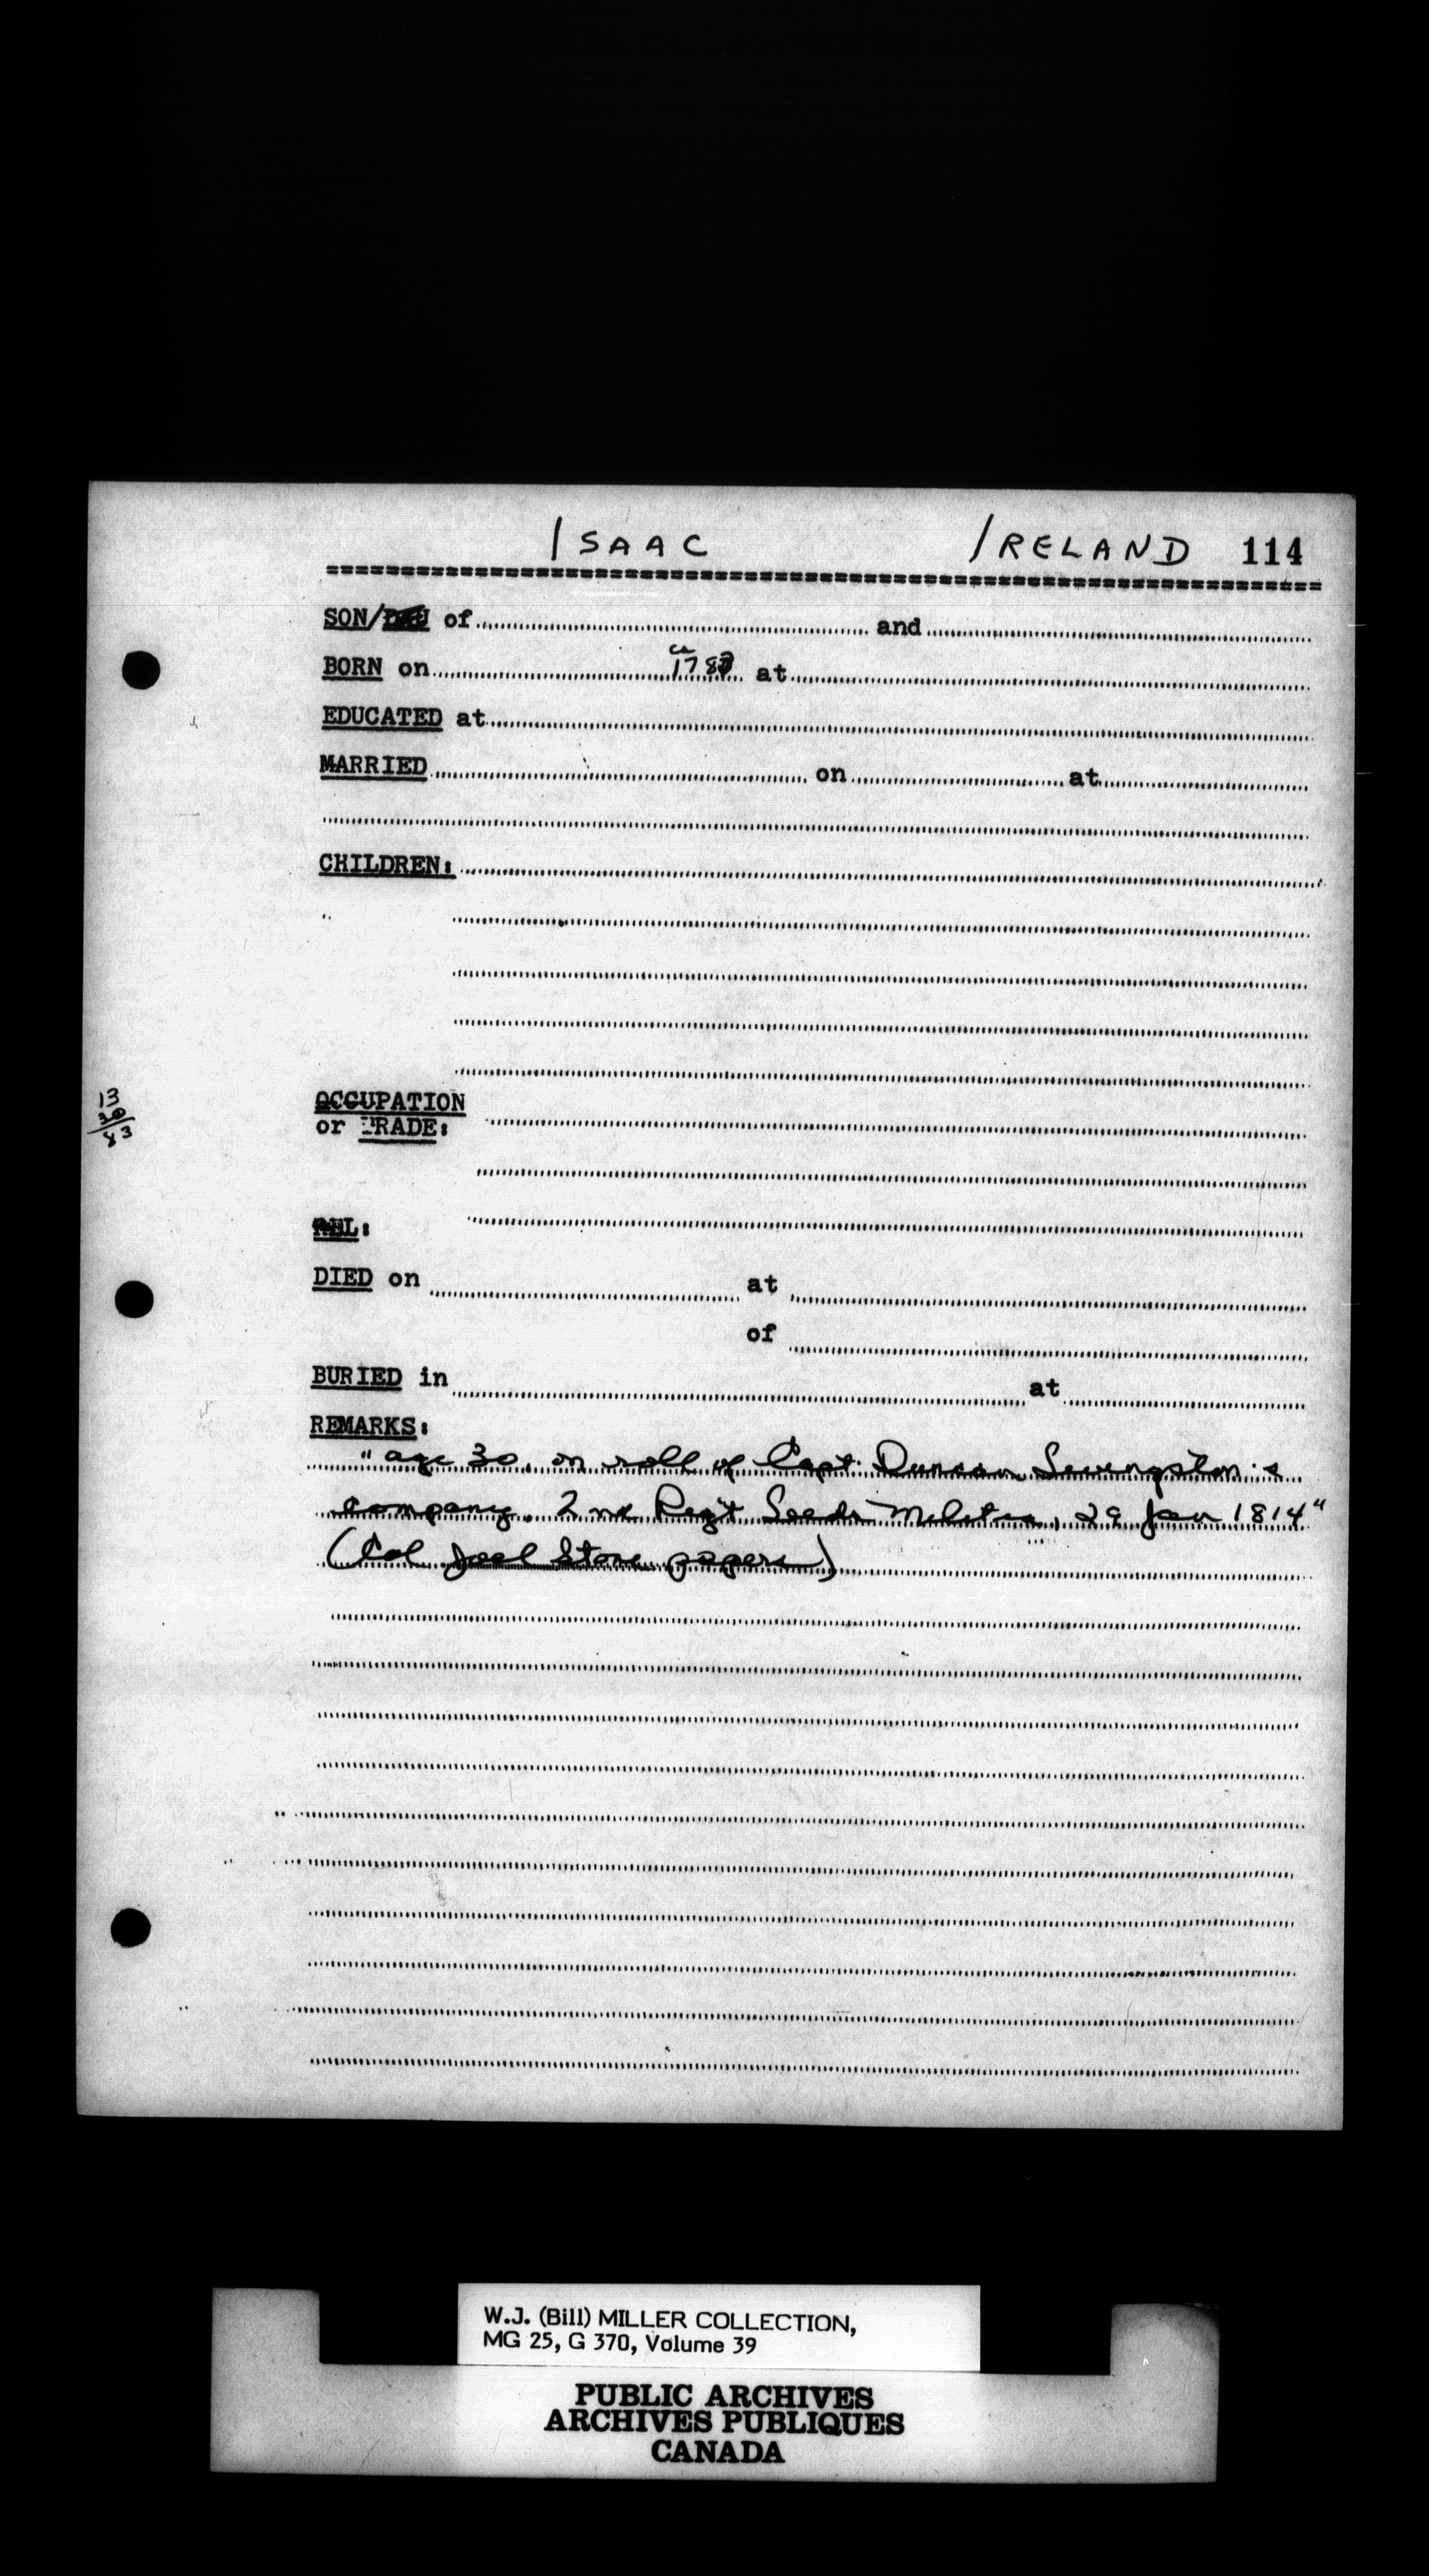 ISAAC IRELAND 114
SON/DAU of and
BORN on ca 1783 at
EDUCATED at
MARRIED on at
CHILDREN:
13
30
83
OCCUPATION
or TRADE:
REL:
DIED on at
of
BURIED in at
REMARKS:
"age 30, on roll of Capt. Duncan Livingston's
company, 2nd Reg't Leeds Militia, 29 Jan 1814"
(Col Joel Stone papers)
W.J. (Bill) MILLER COLLECTION,
MG 25, G 370, Volume 39
PUBLIC ARCHIVES
ARCHIVES PUBLIQUES
CANADA